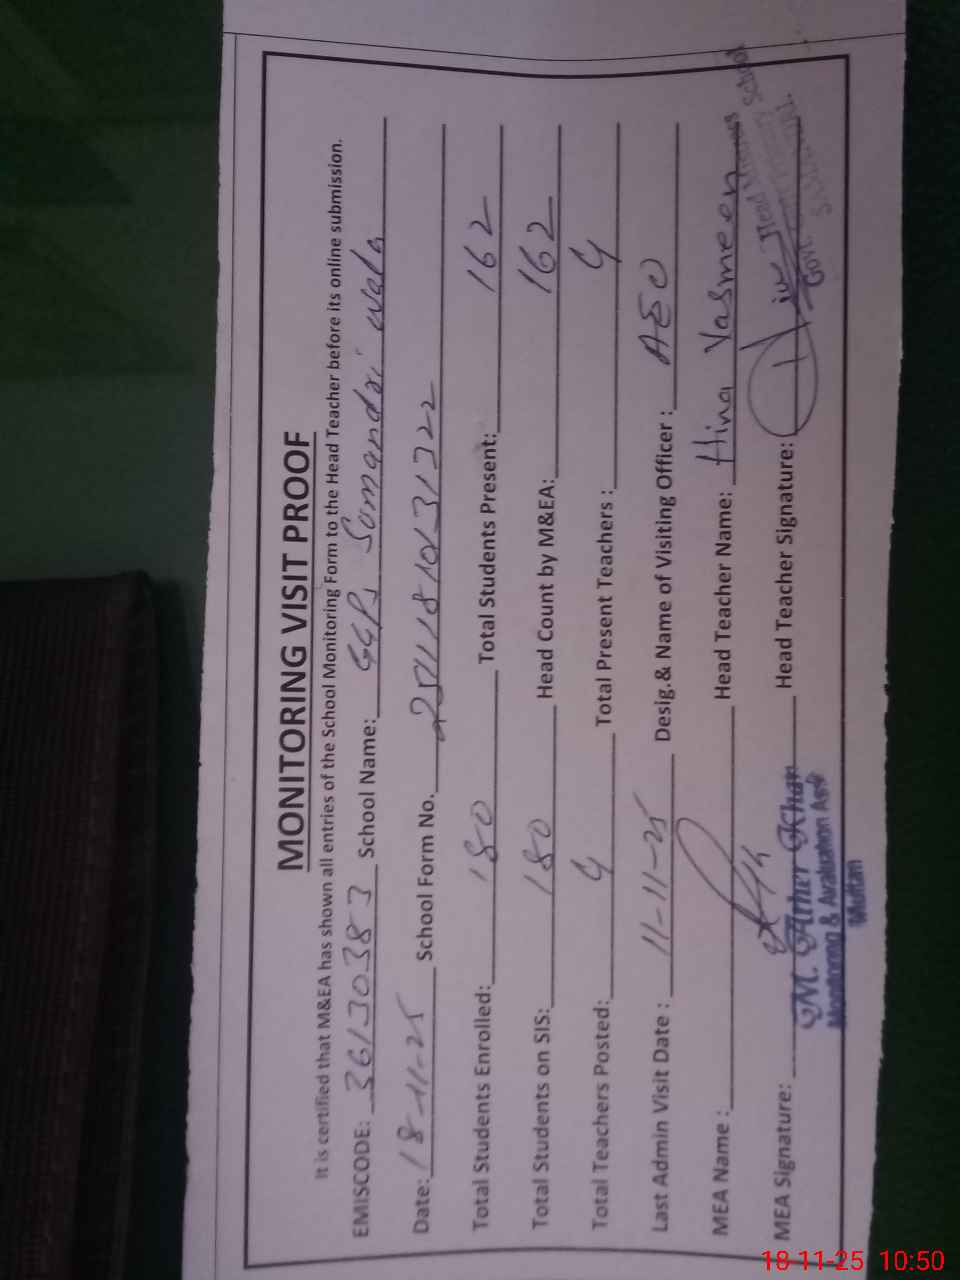 MONITORING VISIT PROOF
It is certified that M&EA has shown all entries of the School Monitoring Form to the Head Teacher before its online submission.
EMISCODE: 36130383 School Name: GGPS Samandri wala
Date: 18-11-25 School Form No.
Total Students Enrolled: 180 Total Students Present: 162
Total Students on SIS: 180 Head Count by M&EA: 162
Total Teachers Posted: 4 Total Present Teachers : 4
Last Admin Visit Date : 11-11-25 Desig.& Name of Visiting Officer : AEO
MEA Name : Head Teacher Name: Hina Yasmeen
MEA Signature: Head Teacher Signature:
M. Ather Khan
Monitoring & Avaluation Asstt
Multan
Head
School
Govt.
18-11-25 10:50